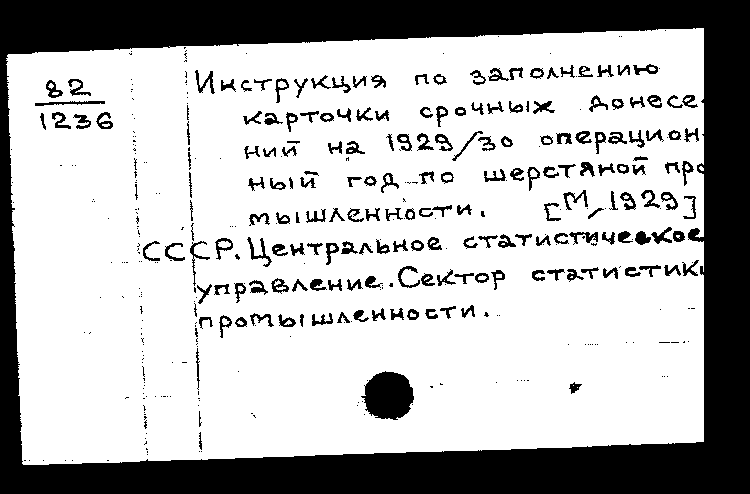 82
1236
Инструкция по заполнению
карточки срочных донесе-
ний на 1929/30 операцион-
ный год по шерстяной про
мышленности. [М, 1929]
СССР. Центральное статистическое
управление. Сектор статистики
промышленности.